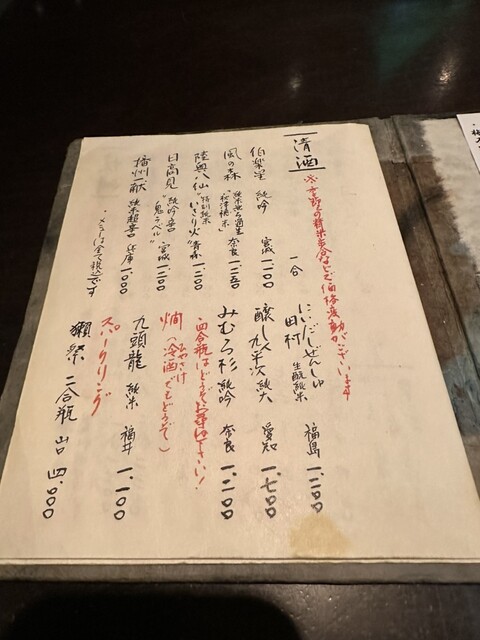 清酒
※季節や精米歩合などで価格変動がございます
一合
伯楽星 純吟 宮城 一、二〇〇
風の森 純米無ろ過生 "秋津穂" 奈良 一、二五〇
陸奥八仙 特別純米 "いさり火" 青森 一、二〇〇
日高見 純吟辛口 "弥助ラベル" 宮城 一、三〇〇
播州一献 純米超辛口 兵庫 一、〇〇〇
・メニューは全て税込です
にいだしぜんしゅ
田村 生酛純米 福島 一、二〇〇
醸し人九平次 純大 愛知 一、七〇〇
みむろ杉 純吟 奈良 一、二〇〇
四合瓶はどうぞお尋ね下さい!
燗(冷酒でもどうぞ)
九頭龍 純米 福井 一、一〇〇
スパークリング
獺祭 二合瓶 山口 四、〇〇〇